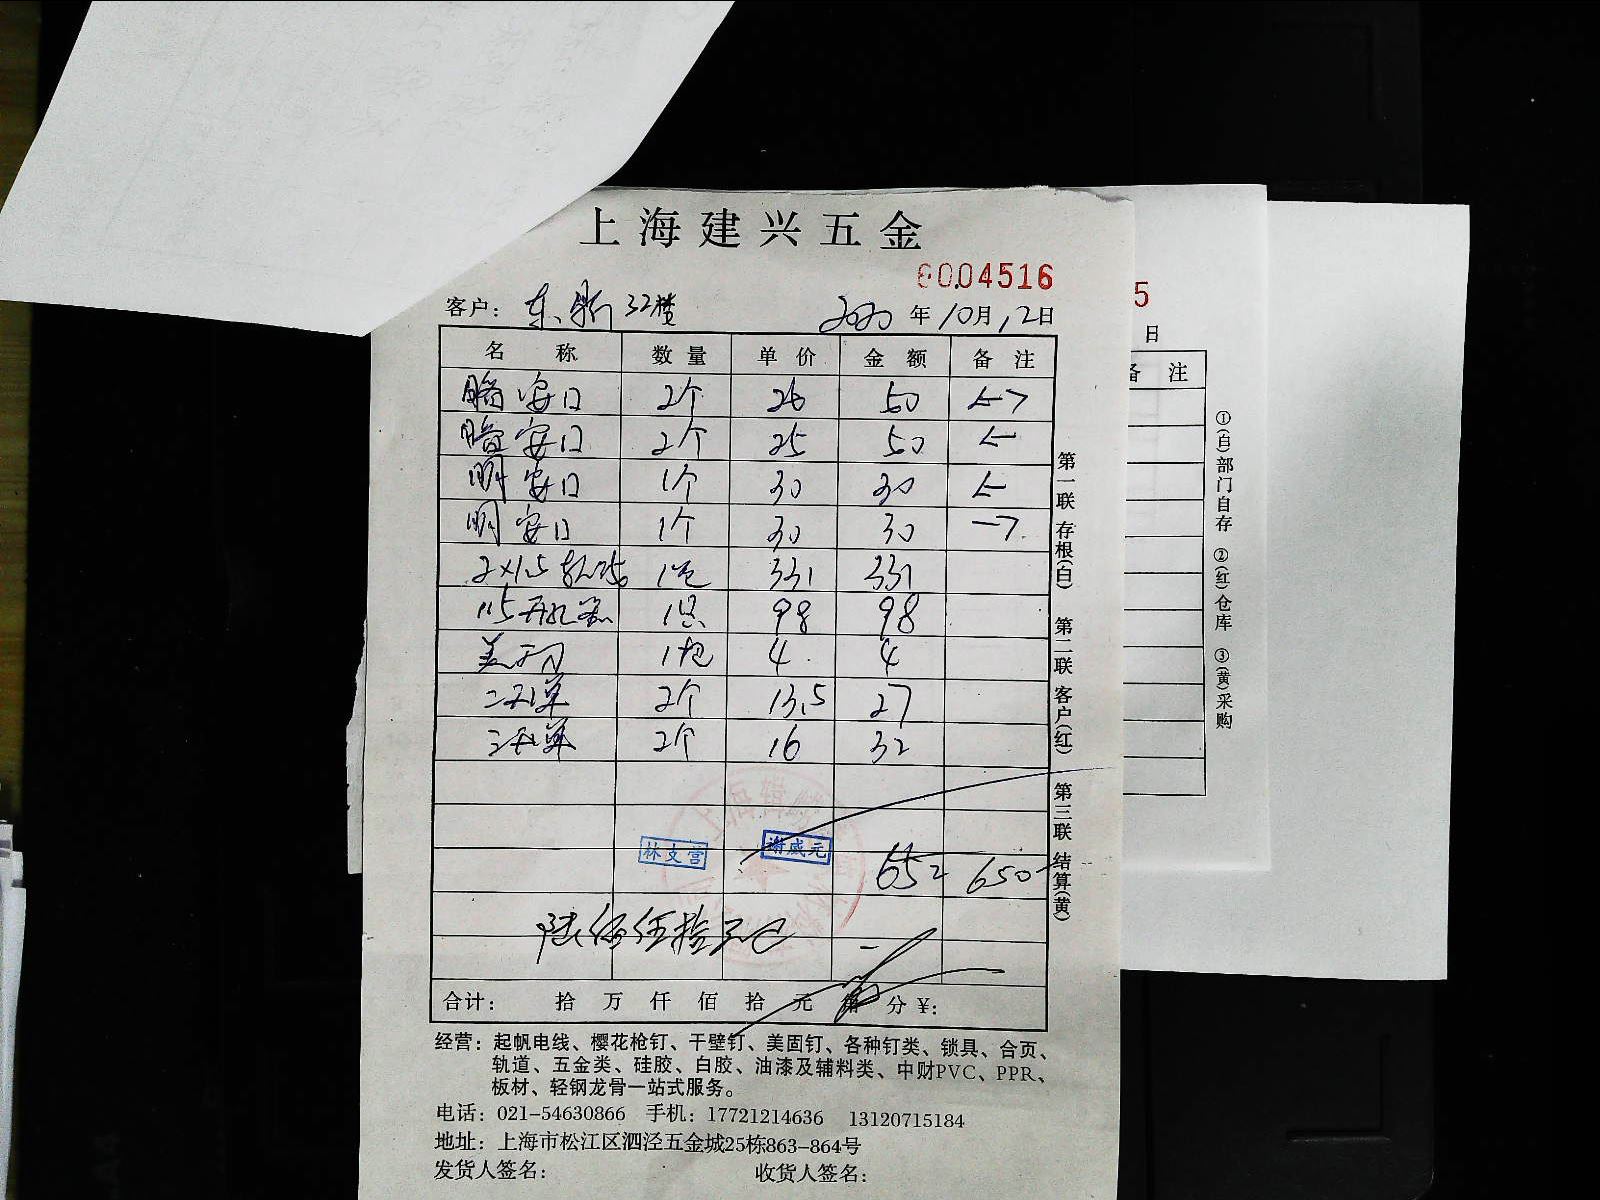 上海建兴五金
6004516
客户： 东 32楼 2020年10月12日
名称 数量 单价 金额 备注
暗安口 2个 26 50 ←→
暗安口 2个 25 50 ←
明安口 1个 30 30 ←
明安口 1个 30 30 →
2×1.5 1卷 331 331
115开孔器 1只 98 98
美工刀 1把 4 4
二开单 2个 13.5 27
三开单 2个 16 32
林支营 谢成元
652 650
陆佰伍拾元
合计： 拾 万 仟 佰 拾 元 角 分 ¥:
经营：起帆电线、樱花枪钉、干壁钉、美固钉、各种钉类、锁具、合页、
轨道、五金类、硅胶、白胶、油漆及辅料类、中财PVC、PPR、
板材、轻钢龙骨一站式服务。
电话：021-54630866 手机：17721214636 13120715184
地址：上海市松江区泗泾五金城25栋863-864号
发货人签名： 收货人签名：
第一联 存根(白) 第二联 客户(红) 第三联 结算(黄)
5
日
备注
①(白)部门自存 ②(红)仓库 ③(黄)采购